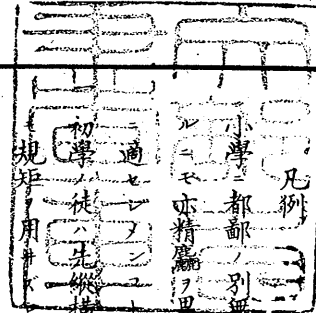 凡例
小學ニ都鄙ノ別無
ルニモ亦精麤ヲ異
ニ適セシメンコト
初學ノ徒ハ先縱横
モ規矩ヲ用井ズ